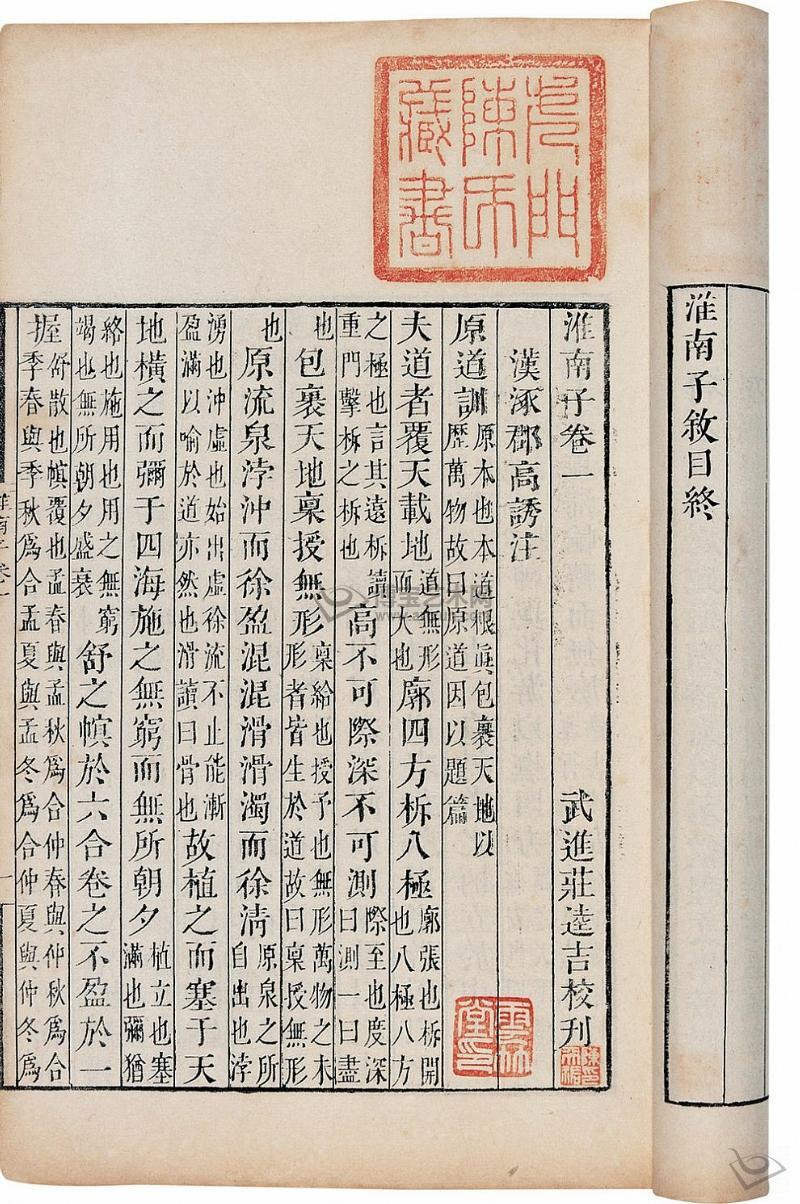 淮南子敘目終
陳氏
藏書
淮南子卷一 武進莊逵吉校刊
漢涿郡高誘注
原道訓原本也本道根眞包裹天地以歷萬物故曰原道因以題篇
夫道者覆天載地道無形而大也廓四方柝八極廓張也柝開也八極八方
之極也言其遠柝讀重門擊柝之柝也高不可際深不可測際至也度深曰測一曰盡
也包裹天地稟授無形稟給也授予也無形萬物之未形者皆生於道故曰稟授無形
也原流泉浡沖而徐盈混混滑滑濁而徐清原泉之所自出也浡
湧也沖虛也始出虛徐流不止能漸盈滿以喻於道亦然也滑讀曰骨也故植之而塞于天
地橫之而彌于四海施之無窮而無所朝夕植立也塞滿也彌猶
絡也施用也用之無窮竭也無所朝夕盛衰舒之幎於六合卷之不盈於一
握舒散也幎覆也孟春與孟秋爲合仲春與仲秋爲合季春與季秋爲合孟夏與孟冬爲合仲夏與仲冬爲
淮南子卷一 一
博宝艺术网